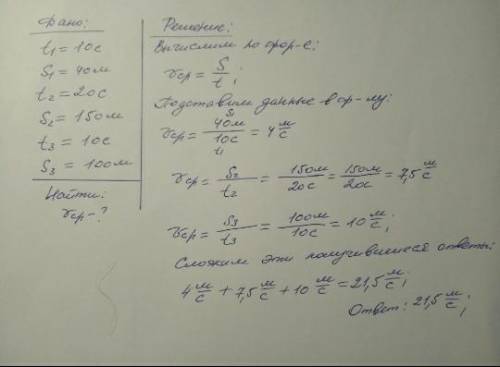 Дано:
t₁ = 10с
S₁ = 40м
t₂ = 20с
S₂ = 150м
t₃ = 10с
S₃ = 100м
Найти:
vср - ?
Решение:
Вычислим по фор-е:
vср = S/t;
Подставим данные в ф-лу:
vср = S₁ 40м / t₁ 10с = 4 м/с
vср = S₂/t₂ = 150м/20с = 150м/20с = 7,5 м/с
vср = S₃/t₃ = 100м/10с = 10 м/с;
Сложим эти получившиеся ответы:
4 м/с + 7,5 м/с + 10 м/с = 21,5 м/с;
Ответ: 21,5 м/с;